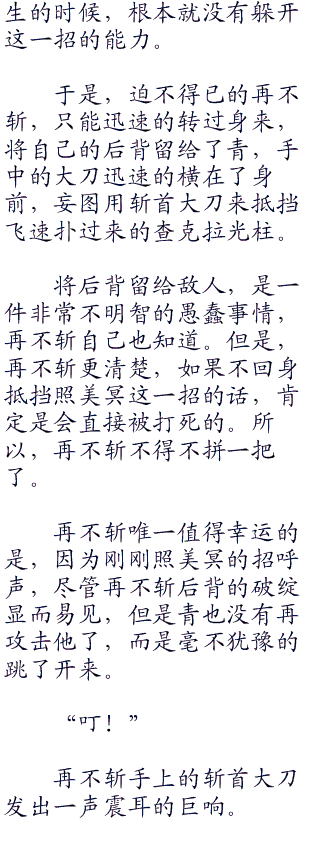 生的时候，根本就没有躲开
这一招的能力。
于是，迫不得已的再不
斩，只能迅速的转过身来，
将自己的后背留给了青，手
中的大刀迅速的横在了身
前，妄图用斩首大刀来抵挡
飞速扑过来的查克拉光柱。
将后背留给敌人，是一
件非常不明智的愚蠢事情，
再不斩自己也知道。但是，
再不斩更清楚，如果不回身
抵挡照美冥这一招的话，肯
定是会直接被打死的。所
以，再不斩不得不拼一把
了。
再不斩唯一值得幸运的
是，因为刚刚照美冥的招呼
声，尽管再不斩后背的破绽
显而易见，但是青也没有再
攻击他了，而是毫不犹豫的
跳了开来。
“叮！”
再不斩手上的斩首大刀
发出一声震耳的巨响。